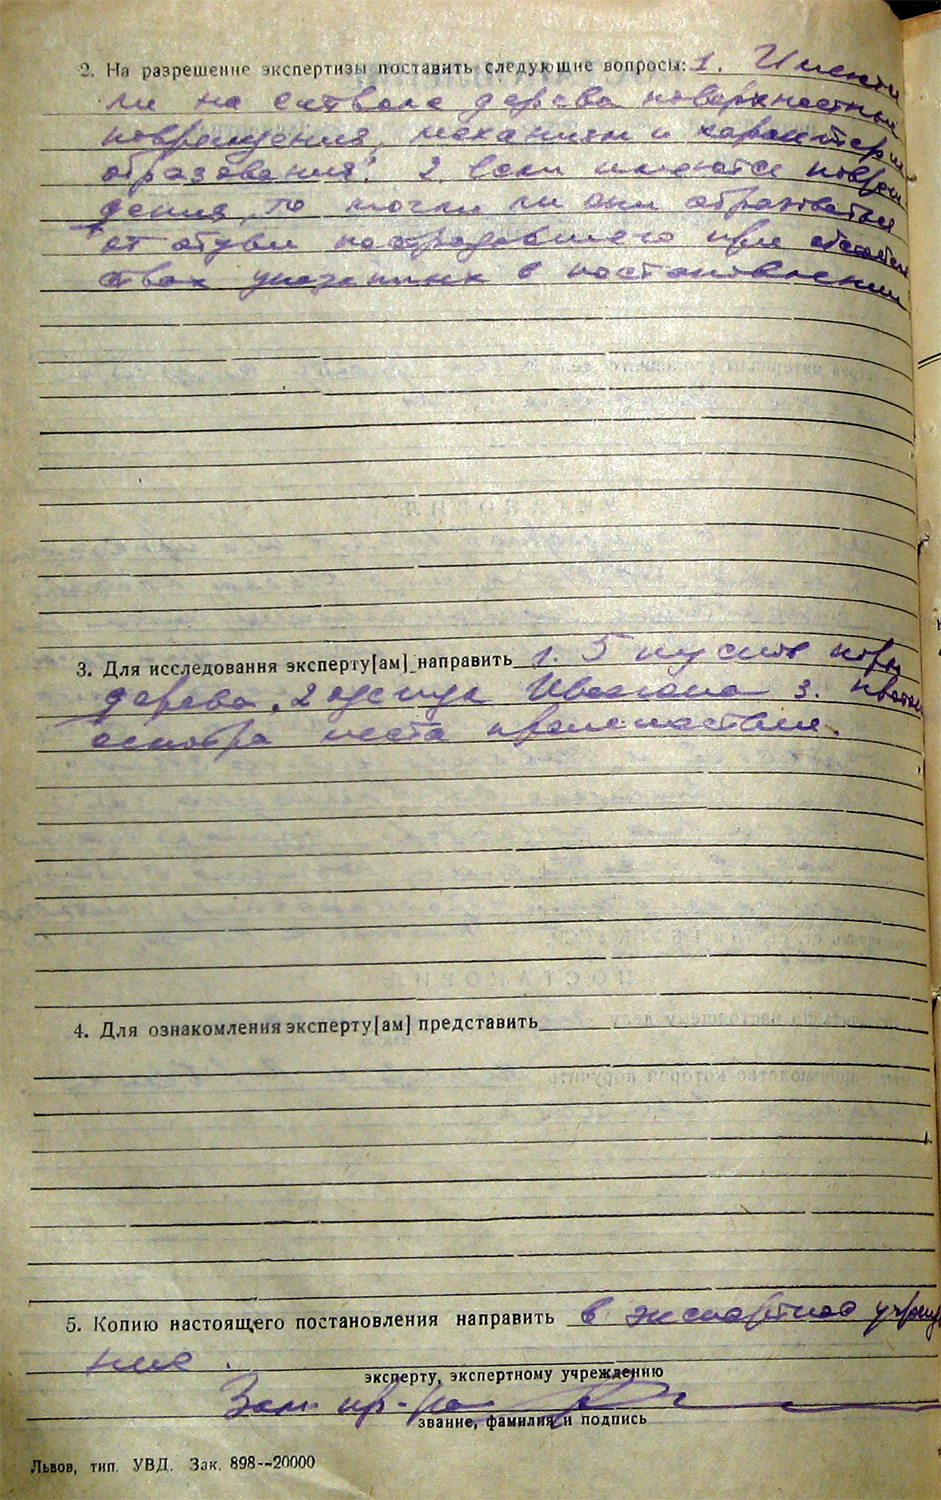 2. На разрешение экспертизы поставить следующие вопросы: 1. Имеются
ли на стволе дерева поверхностные
повреждения, механизм и характер их
образования? 2. Если имеются повреж
дения, то могли ли они образоваться
от обуви пострадавшего при обстоятель
ствах указанных в постановлении
3. Для исследования эксперту[ам] направить 1. 5 кусков коры
дерева, 2 одежда 3.
осмотра места происшествия.
4. Для ознакомления эксперту[ам] представить
5. Копию настоящего постановления направить в экспертное учрежде
ние.
эксперту, экспертному учреждению
Зам. пр-ра
звание, фамилия и подпись
Львов, тип. УВД. Зак. 898--20000